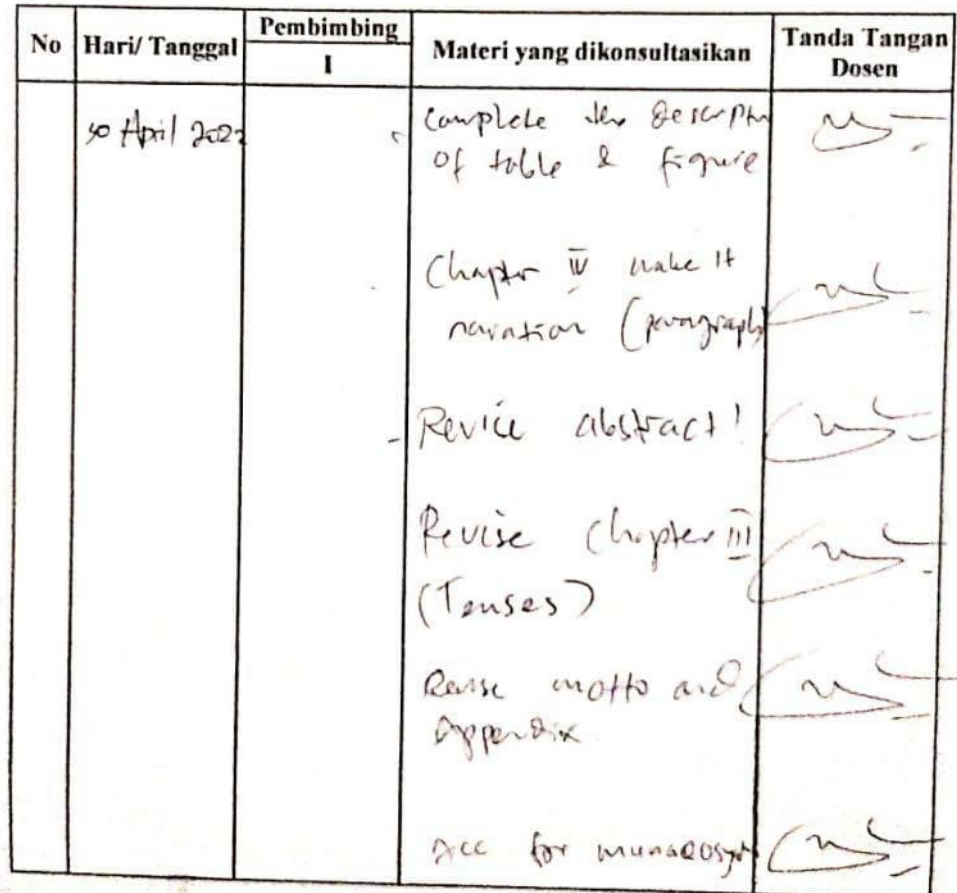 No Hari/ Tanggal Pembimbing Materi yang dikonsultasikan Tanda Tangan
I Dosen
April 2022 Complete the
of table & figure
Chapter IV make it
naration (paragraph)
Revice abstract!
Revise Chapter III
(Tenses)
Revise motto and
Appendix
Acc for